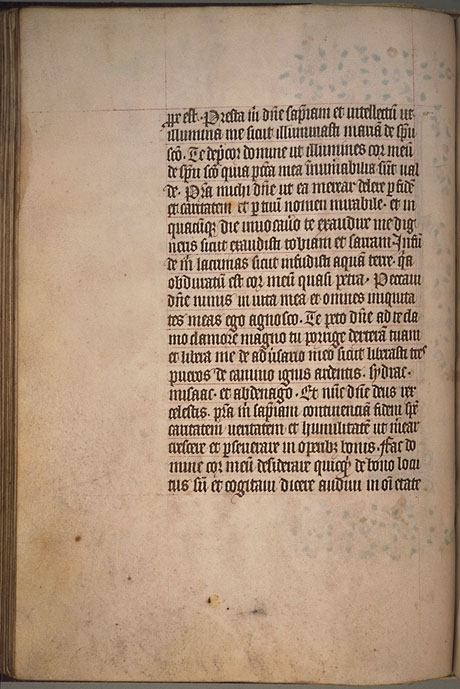 est. Presta m̄ dn̄e sapiam et intellectū ut
illumina me sicut illuminasti mariā de spū
scō. Te dep̄cor domine ut illumines cor meū
de spū scō quia pctā mea īnumabilia sūt ual
de. Prā michi dn̄e ut ea merear delere p fidē
et caritatem et p tuū nomen mirabile. et in
quacūqꝫ die inuocauo te exaudire me dig
neris sicut exaudisti tobiam et sarram. Infū
de m̄ lacrimas sicut infudisti aquā terre. q̄a
obduratū est cor meū quasi petra. Peccaui
dn̄e nimis in uita mea et omnes iniquita
tes meas ego agnosco. Te peto dn̄e ad te cla
mo clamore magno tu porrige dexterā tuam
et libra me de aduṡario meo sicut liberasti tres
pueros de camino ignis ardentis. sydrac.
misaac. et abdenago. Et nūc dn̄e deus rex
celestis. prā m̄ sapiam continenciā fidem spē
caritatem ueritatem et humilitatē ut
crescere et pseuerare in opibꝫ bonis. Fac do
mine cor meū desiderare quicqꝫ de bono locu
tus sū et cogitaui dicere audiui in oī etate